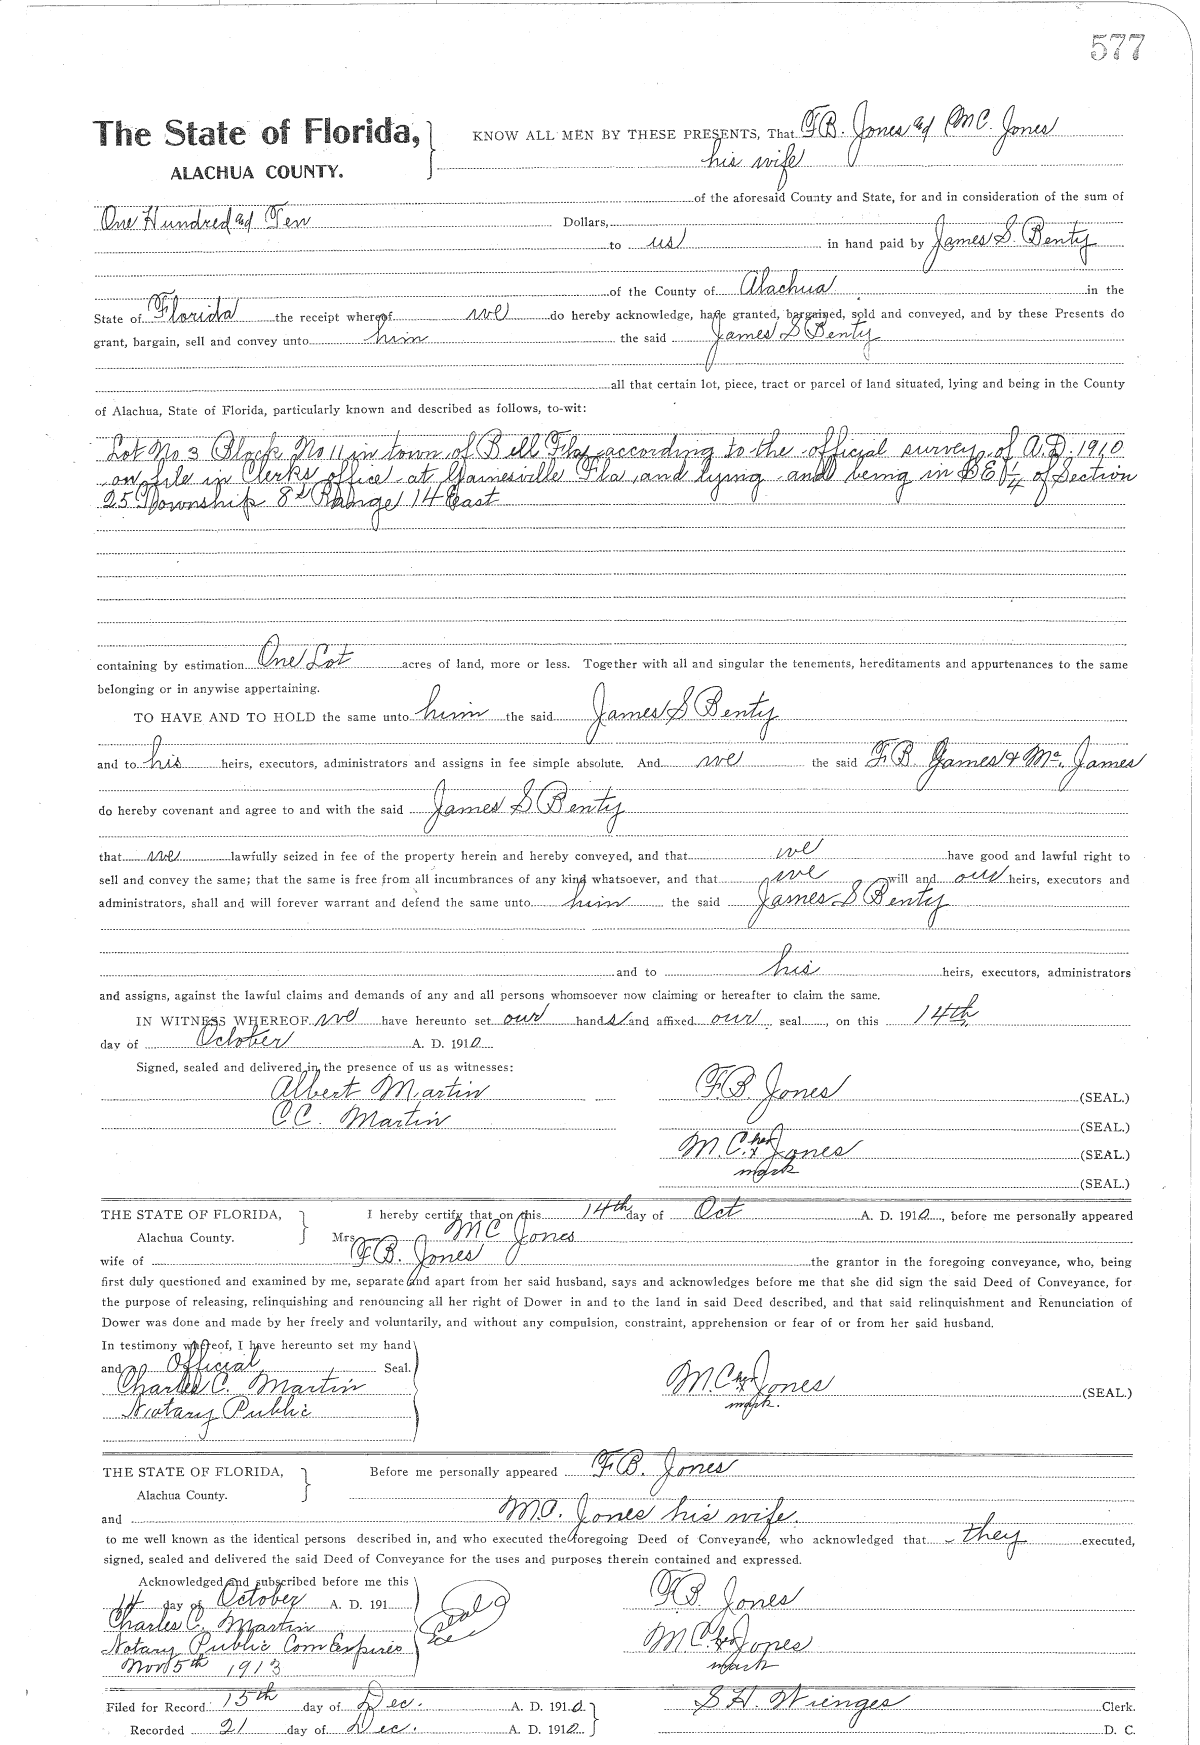 577
The State of Florida,
ALACHUA COUNTY.
KNOW ALL MEN BY THESE PRESENTS, That F.B. Jones and M.C. Jones
his wife
of the aforesaid County and State, for and in consideration of the sum of
One Hundred and Ten Dollars,
to us in hand paid by James S. Benty
of the County of Alachua in the
State of Florida the receipt whereof we do hereby acknowledge, have granted, bargained, sold and conveyed, and by these Presents do
grant, bargain, sell and convey unto him the said James S Benty
all that certain lot, piece, tract or parcel of land situated, lying and being in the County
of Alachua, State of Florida, particularly known and described as follows, to-wit:
Lot No 3 Block No 11 in town of Bell Fla, according to the official survey of A.D. 1910
on file in Clerks office at Gainesville Fla, and lying and being in SE 1/4 of Section
25 Township 8 S Range 14 East
containing by estimation One Lot acres of land, more or less. Together with all and singular the tenements, hereditaments and appurtenances to the same
belonging or in anywise appertaining.
TO HAVE AND TO HOLD the same unto him the said James S Benty
and to his heirs, executors, administrators and assigns in fee simple absolute. And we the said F.B. James & Mc. James
do hereby covenant and agree to and with the said James S Benty
that we lawfully seized in fee of the property herein and hereby conveyed, and that we have good and lawful right to
sell and convey the same; that the same is free from all incumbrances of any kind whatsoever, and that we will and our heirs, executors and
administrators, shall and will forever warrant and defend the same unto him the said James S Benty
and to his heirs, executors, administrators
and assigns, against the lawful claims and demands of any and all persons whomsoever now claiming or hereafter to claim the same.
IN WITNESS WHEREOF we have hereunto set our hands and affixed our seal, on this 14th
day of October A. D. 1910
Signed, sealed and delivered in the presence of us as witnesses:
Albert Martin F.B. Jones (SEAL.)
C.C. Martin (SEAL.)
M.C. her x mark Jones (SEAL.)
(SEAL.)
THE STATE OF FLORIDA,
Alachua County.
I hereby certify that on this 14th day of Oct A. D. 1910, before me personally appeared
Mrs. M C Jones
wife of F.B. Jones the grantor in the foregoing conveyance, who, being
first duly questioned and examined by me, separate and apart from her said husband, says and acknowledges before me that she did sign the said Deed of Conveyance, for
the purpose of releasing, relinquishing and renouncing all her right of Dower in and to the land in said Deed described, and that said relinquishment and Renunciation of
Dower was done and made by her freely and voluntarily, and without any compulsion, constraint, apprehension or fear of or from her said husband.
In testimony whereof, I have hereunto set my hand
and Official Seal.
Charles C. Martin
Notary Public
M.C. her x mark. Jones (SEAL.)
THE STATE OF FLORIDA,
Alachua County.
Before me personally appeared F.B. Jones
and M.C. Jones his wife.
to me well known as the identical persons described in, and who executed the foregoing Deed of Conveyance, who acknowledged that they executed,
signed, sealed and delivered the said Deed of Conveyance for the uses and purposes therein contained and expressed.
Acknowledged and subscribed before me this
14 day of October A. D. 191
Charles C. Martin
Notary Public Com Expires
Nov 5th 1913
Seal
F.B. Jones
M C her x mark Jones
Filed for Record 15th day of Dec. A. D. 1910. S.H. Wienges Clerk.
Recorded 21 day of Dec. A. D. 1910. D. C.